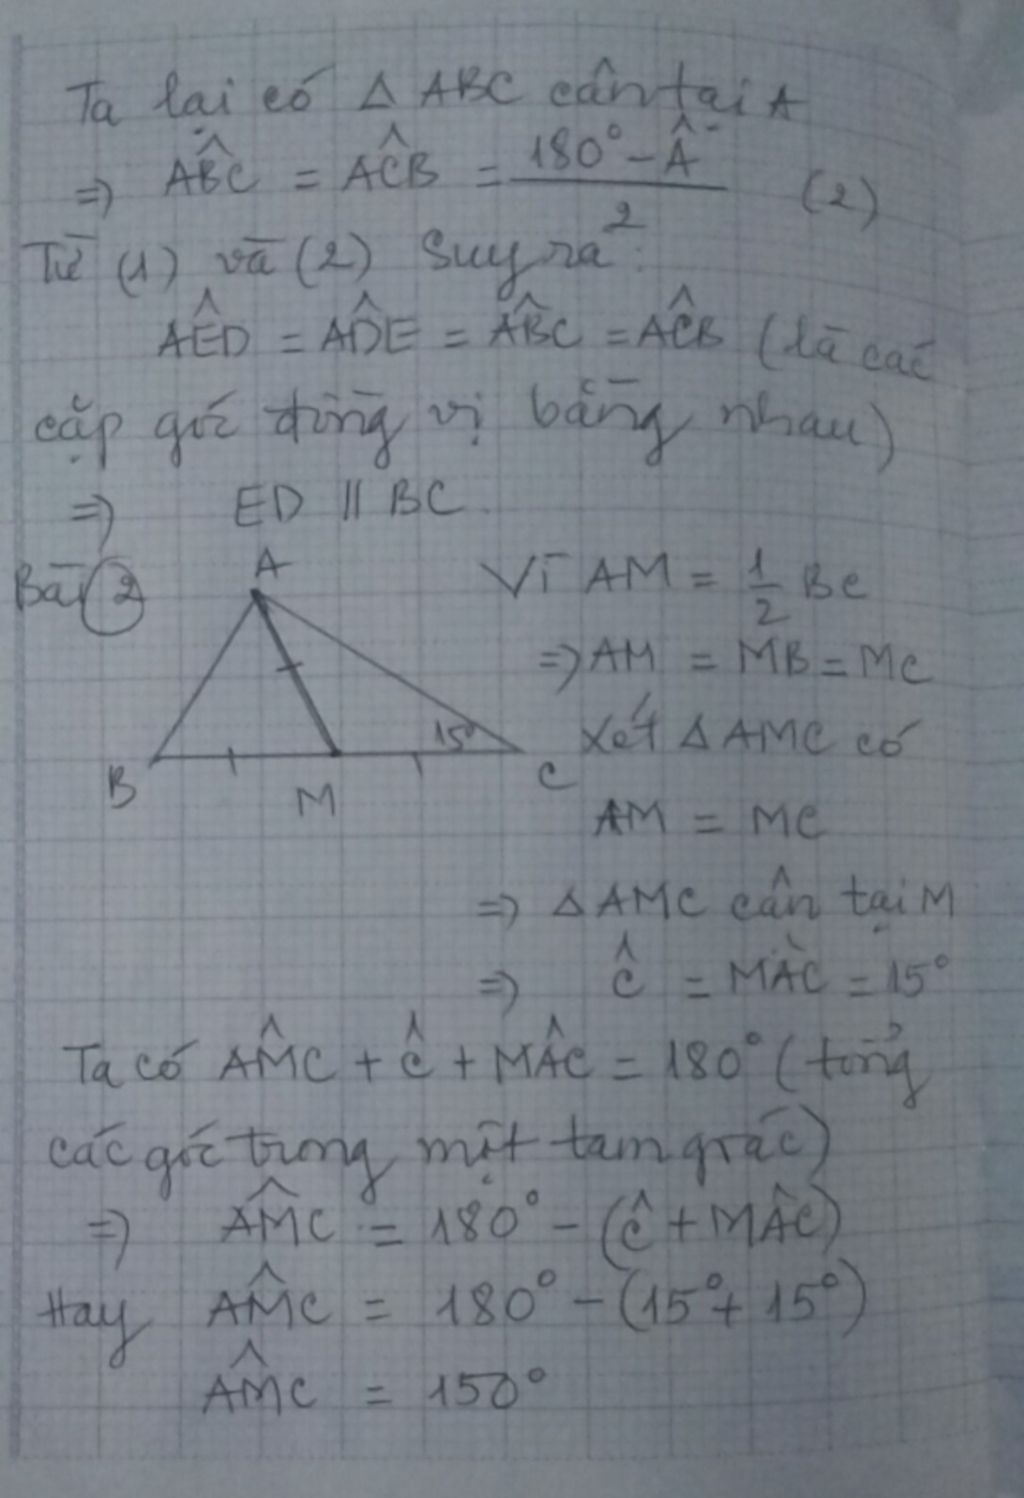 Ta lại có Δ ABC cân tại A
⇒ ABC^ = ACB^ = (180° - Â) / 2 (2)
Từ (1) và (2) Suy ra:
AED^ = ADE^ = ABC^ = ACB^ (là các
cặp góc đồng vị bằng nhau)
⇒ ED // BC.
Bài 2
A
15°
B
M
C
Vì AM = 1/2 BC
⇒ AM = MB = MC
Xét Δ AMC có
AM = MC
⇒ Δ AMC cân tại M
⇒ Ĉ = MÂC = 15°
Ta có AMC^ + Ĉ + MÂC = 180° (tổng
các góc trong một tam giác)
⇒ AMC^ = 180° - (Ĉ + MÂC)
Hay AMC^ = 180° - (15° + 15°)
AMC^ = 150°